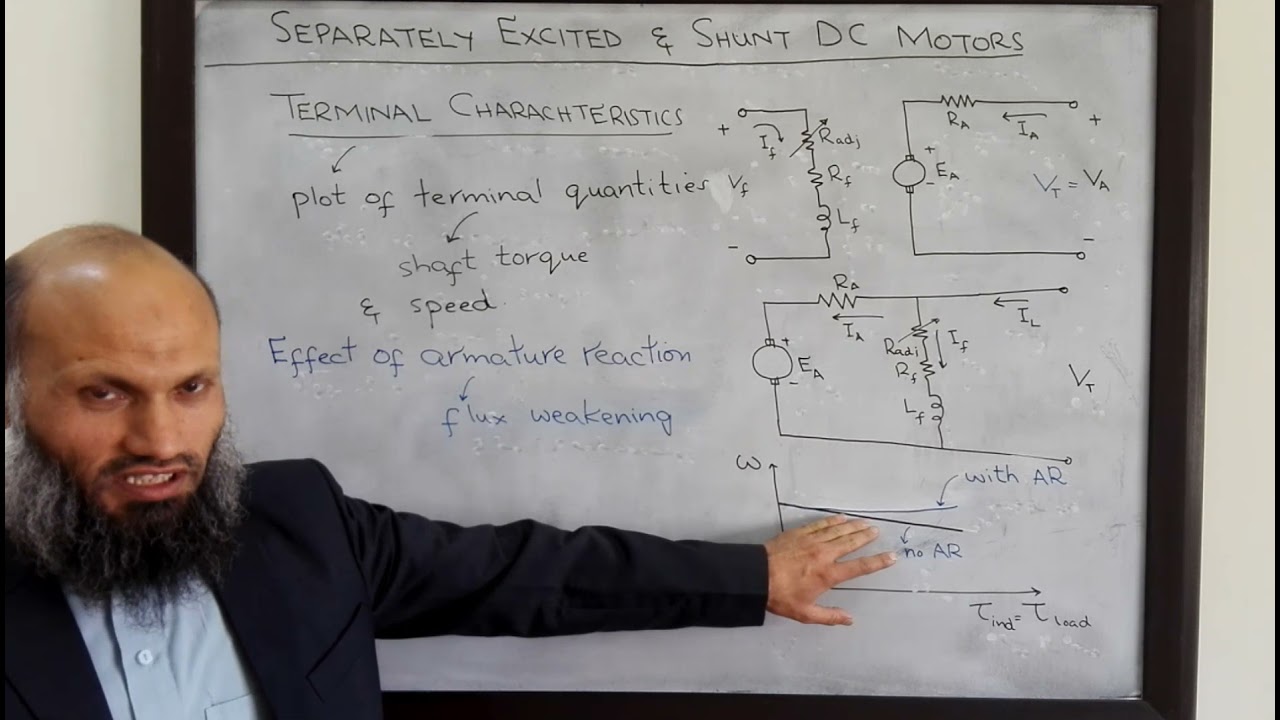 SEPARATELY EXCITED & SHUNT DC MOTORS
TERMINAL CHARACHTERISTICS
plot of terminal quantities
shaft torque
& speed.
Effect of armature reaction
flux weakening
+
If
Radj
Rf
Vf
Lf
-
RA
IA
+
+
EA
-
VT = VA
-
RA
IA
IL
+
EA
-
Radj
If
Rf
Lf
VT
ω
with AR
no AR
τind = τload